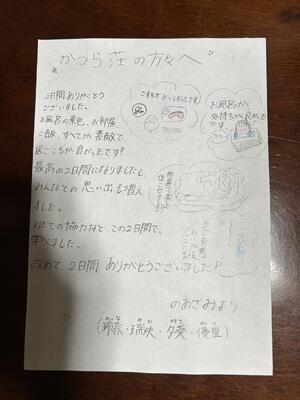 かつら荘の方々へ
2日間ありがとう
ございました。
お風呂の景色、お部屋
ご飯、すべてが素敵で、
居ごこちが良かったです!
最高の2日間になりましたし、
みんなとの思い出も増え
ました。
での協力など、この2日間で、
学べました。
改めて2日間、ありがとうございました!
ごはんがおいしかったです
お風呂が
気持ちが良かった
です
のあさみより
(玲奈・瑞央・夕葵・優里)